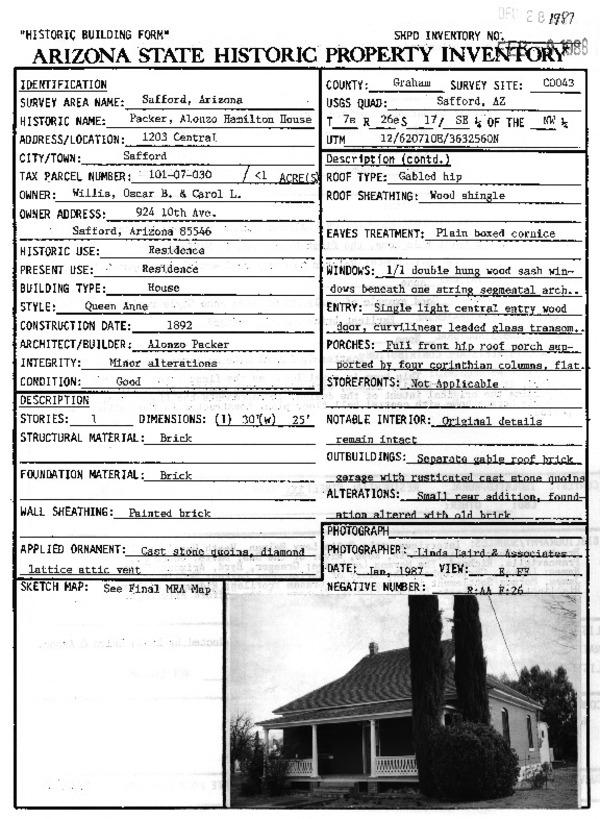 DEC 28 1987
"HISTORIC BUILDING FORM"
SHPD INVENTORY NO.
FEB 8 1988
ARIZONA STATE HISTORIC PROPERTY INVENTORY
IDENTIFICATION
SURVEY AREA NAME: Safford, Arizona
HISTORIC NAME: Packer, Alonzo Hamilton House
ADDRESS/LOCATION: 1203 Central
CITY/TOWN: Safford
TAX PARCEL NUMBER: 101-07-030 / <1 ACRE(S)
OWNER: Willis, Oscar B. & Carol L.
OWNER ADDRESS: 924 10th Ave.
Safford, Arizona 85546
HISTORIC USE: Residence
PRESENT USE: Residence
BUILDING TYPE: House
STYLE: Queen Anne
CONSTRUCTION DATE: 1892
ARCHITECT/BUILDER: Alonzo Packer
INTEGRITY: Minor alterations
CONDITION: Good
DESCRIPTION
STORIES: 1 DIMENSIONS: (l) 30'(w) 25'
STRUCTURAL MATERIAL: Brick
FOUNDATION MATERIAL: Brick
WALL SHEATHING: Painted brick
APPLIED ORNAMENT: Cast stone quoins, diamond
lattice attic vent
COUNTY: Graham SURVEY SITE: C0043
USGS QUAD: Safford, AZ
T 7s R 26e S 17/ SE ¼ OF THE NW ¼
UTM 12/620710E/3632560N
Description (contd.)
ROOF TYPE: Gabled hip
ROOF SHEATHING: Wood shingle
EAVES TREATMENT: Plain boxed cornice
WINDOWS: 1/1 double hung wood sash win-
dows beneath one string segmental arch..
ENTRY: Single light central entry wood
door, curvilinear leaded glass transom..
PORCHES: Full front hip roof porch sup-
ported by four corinthian columns, flat.
STOREFRONTS: Not Applicable
NOTABLE INTERIOR: Original details
remain intact
OUTBUILDINGS: Separate gable roof brick
garage with rusticated cast stone quoins
ALTERATIONS: Small rear addition, found-
ation altered with old brick.
PHOTOGRAPH
PHOTOGRAPHER: Linda Laird & Associates
DATE: Jan, 1987 VIEW:
NEGATIVE NUMBER: R:AA F:26
SKETCH MAP: See Final MRA Map